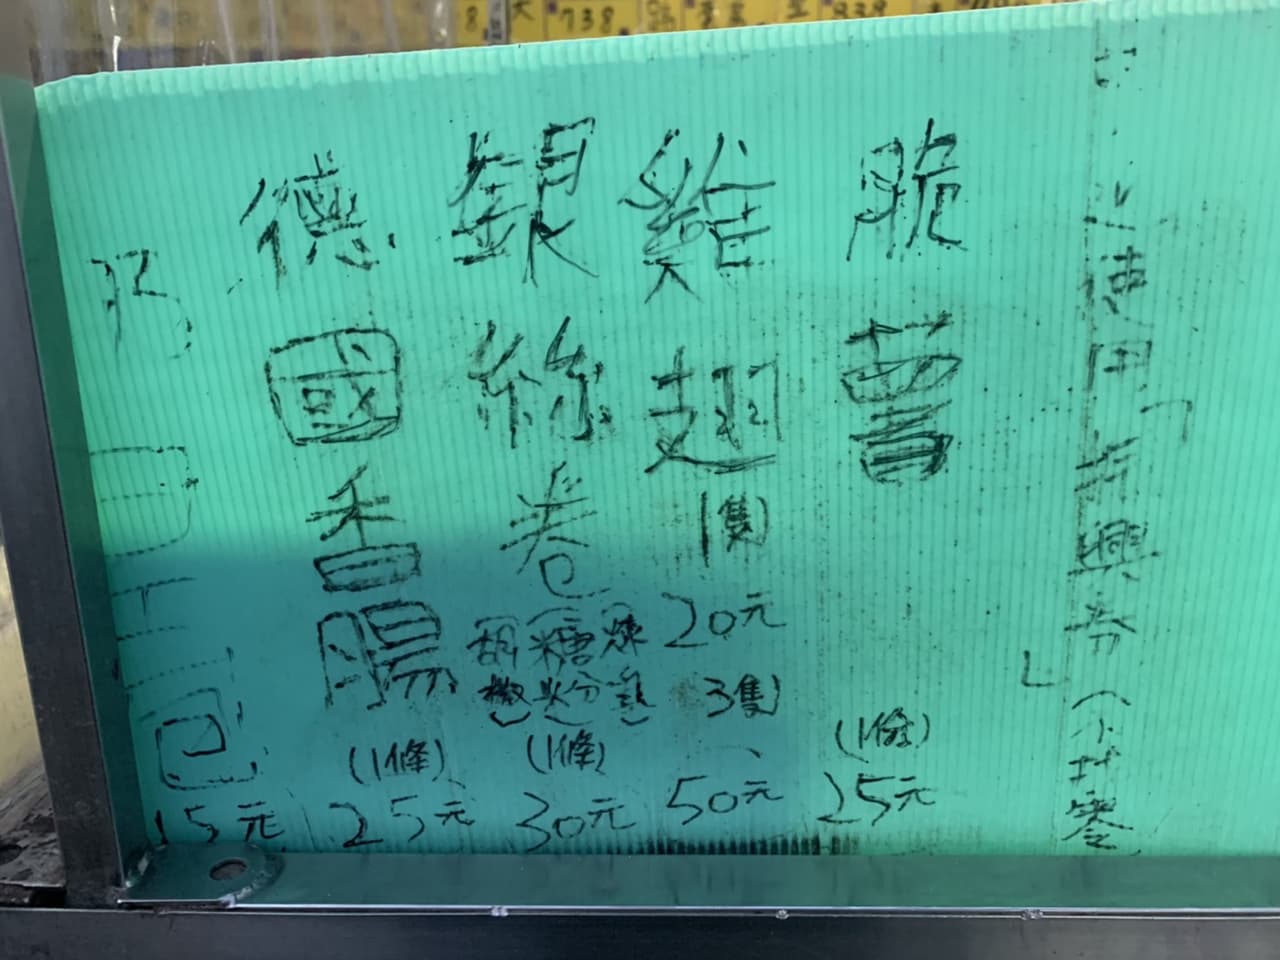 使用「振興券」(不找零
脆薯
(1份)
25元
雞翅
1隻
20元
3隻、
50元
銀絲卷
(胡椒)
(糖粉)
(煉乳)
(1條)
30元
德國香腸
(1條)
25元
15元
738